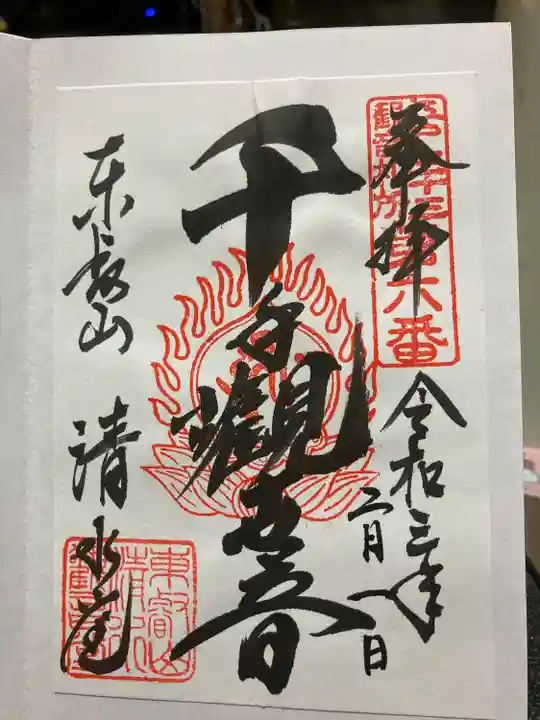 奉拝
令和三年
二月一日
千手觀世音
東叡山 清水堂
六番
東叡山